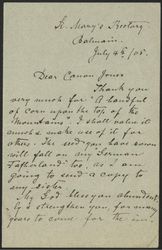 St Mary's Rectory
Balmain.
July 4th/05.
Dear Canon Jones
Thank you
very much for "A handful
of corn upon the top of the
Mountains". I shall value it
much & make use of it for
others. The seed you have sown
will fall on my German
Fatherland too, as I am
going to send a copy to
my sister.
May God bless you abundantly
& strengthen you for many
years to come for the